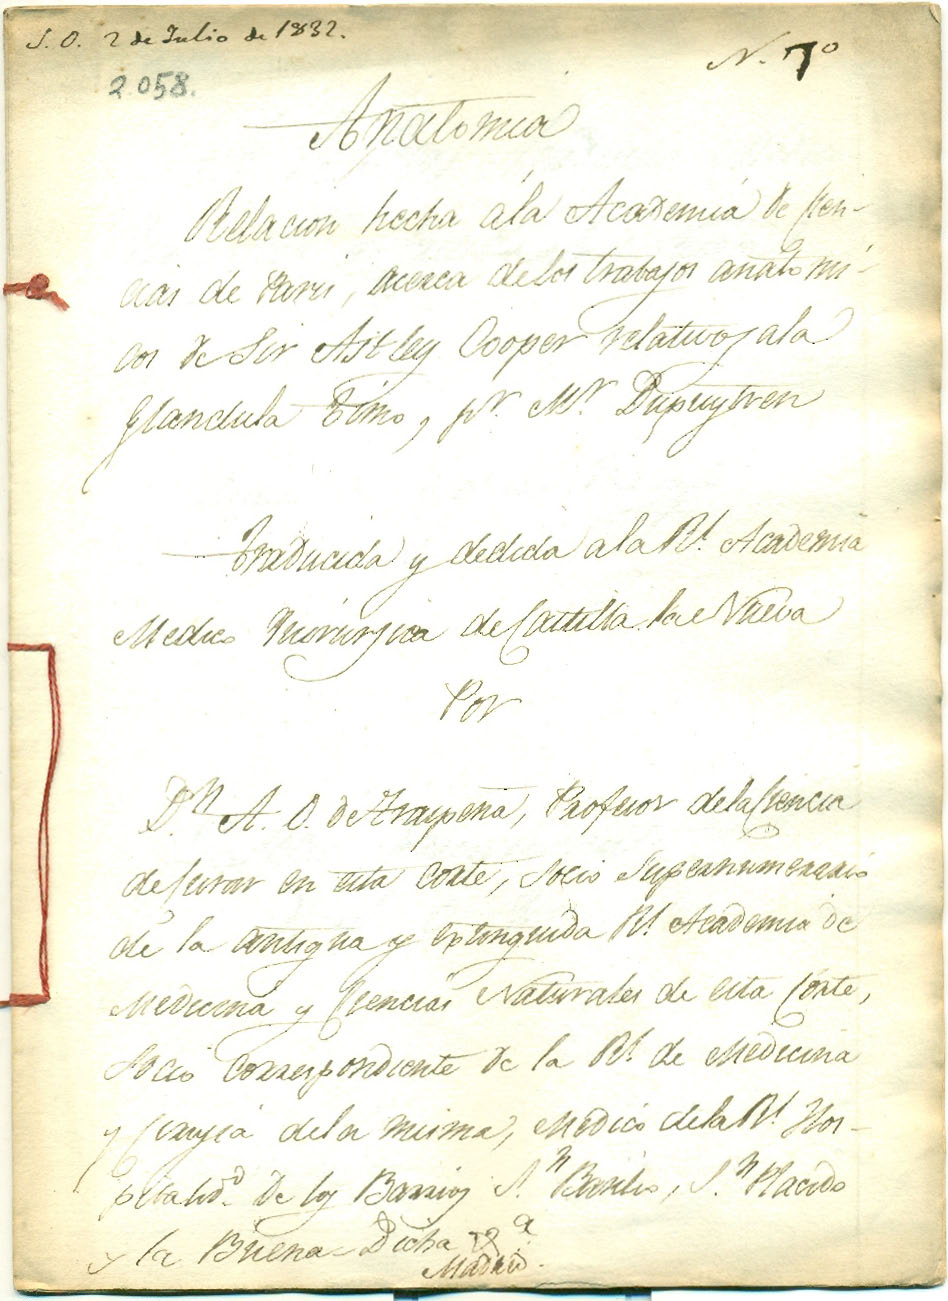 S. O. 2 de Julio de 1832.
N. 7º
2.058.
Anatomia
Relacion hecha ála Academia de Cien-
cias de Paris, acerca de los trabajos anatomi-
cos de Sir Astley Cooper relativos ala
Glandula Timo, pr. Mr. Dupuytren
Traducida y dedida ala Rl. Academia
Medico Quirurjica de Castilla la Nueva
Por
Dn. A. O. de Traspeña, Profesor dela Ciencia
de Curar en esta Corte, Socio Supernumerario
de la antigua y extinguida Rl. Academia de
Medicina y Ciencias Naturales de esta Corte,
Socio Correspondiente de la Rl. de Medicina
y Cirujia dela misma, Medico dela Rl. Hos-
pitalidd. De los Barrios Sn. Basilio, Sn. Placido
y la Buena-Dicha
Madrid.